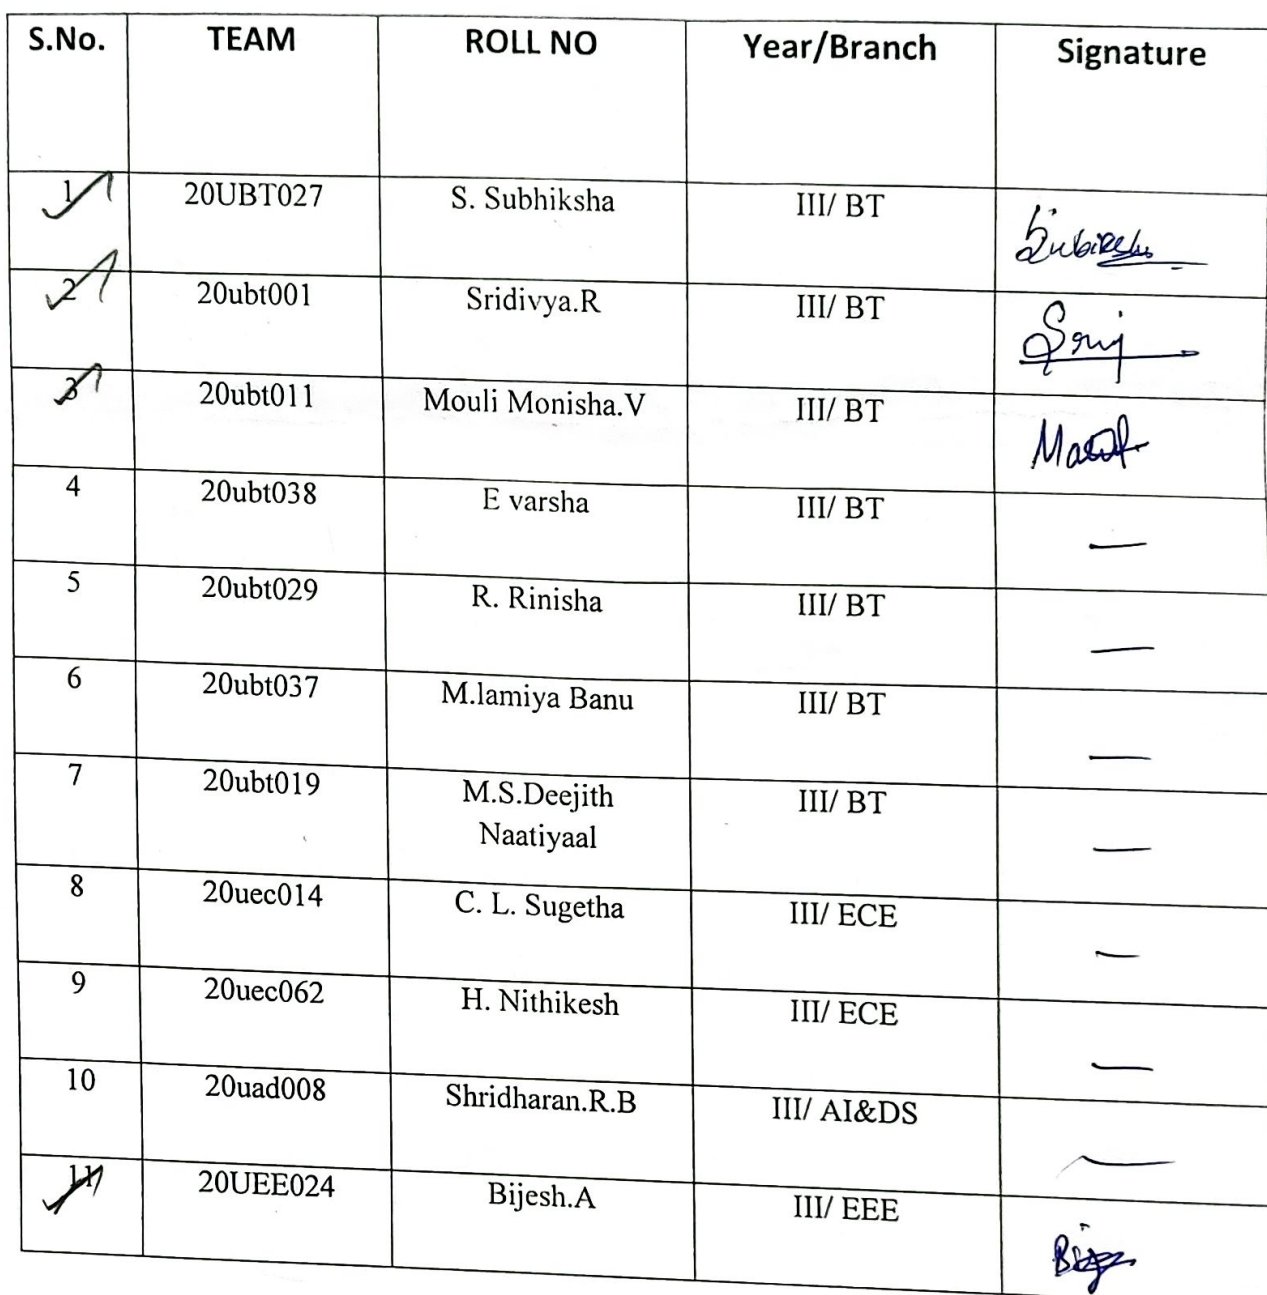 S.No. TEAM ROLL NO Year/Branch Signature
1 20UBT027 S. Subhiksha III/ BT Subiksha
2 20ubt001 Sridivya.R III/ BT
3 20ubt011 Mouli Monisha.V III/ BT
4 20ubt038 E varsha III/ BT —
5 20ubt029 R. Rinisha III/ BT —
6 20ubt037 M.lamiya Banu III/ BT —
7 20ubt019 M.S.Deejith III/ BT —
Naatiyaal
8 20uec014 C. L. Sugetha III/ ECE —
9 20uec062 H. Nithikesh III/ ECE —
10 20uad008 Shridharan.R.B III/ AI&DS —
11 20UEE024 Bijesh.A III/ EEE